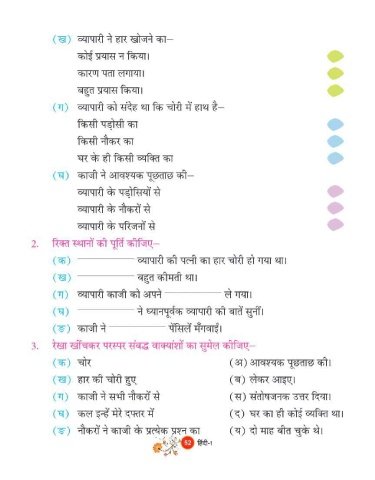 (ख) व्यापारी ने हार खोजने का–
कोई प्रयास न किया।
कारण पता लगाया।
बहुत प्रयास किया।
(ग) व्यापारी को संदेह था कि चोरी में हाथ है–
किसी पड़ोसी का
किसी नौकर का
घर के ही किसी व्यक्ति का
(घ) काजी ने आवश्यक पूछताछ की–
व्यापारी के पड़ोसियों से
व्यापारी के नौकरों से
व्यापारी के परिजनों से
2. रिक्त स्थानों की पूर्ति कीजिए–
(क) ____________ व्यापारी की पत्नी का हार चोरी हो गया था।
(ख) ____________ बहुत कीमती था।
(ग) व्यापारी काजी को अपने ____________ ले गया।
(घ) ____________ ने ध्यानपूर्वक व्यापारी की बातें सुनीं।
(ङ) काजी ने ____________ पेंसिलें मँगवाईं।
3. रेखा खींचकर परस्पर संबद्ध वाक्यांशों का सुमेल कीजिए–
(क) चोर (अ) आवश्यक पूछताछ की।
(ख) हार की चोरी हुए (ब) लेकर आइए।
(ग) काजी ने सभी नौकरों से (स) संतोषजनक उत्तर दिया।
(घ) कल इन्हें मेरे दफ्तर में (द) घर का ही कोई व्यक्ति था।
(ङ) नौकरों ने काजी के प्रत्येक प्रश्न का (य) दो माह बीत चुके थे।
52 हिंदी-1